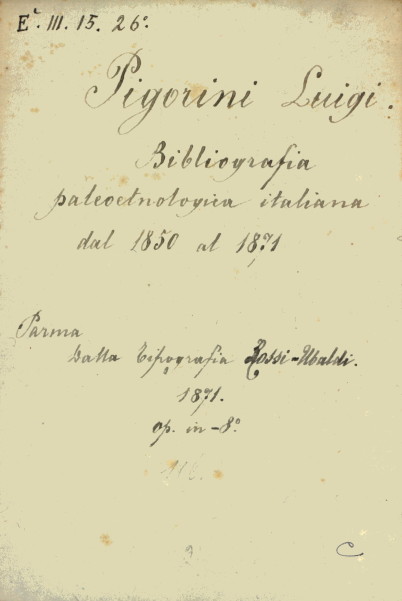 E°. III. 15. 26°.
Pigorini Luigi.
Bibliografia
paleoetnologica italiana
dal 1850 al 1871
Parma
Dalla Tipografia Rossi-Ubaldi.
1871.
op. in-8°
C